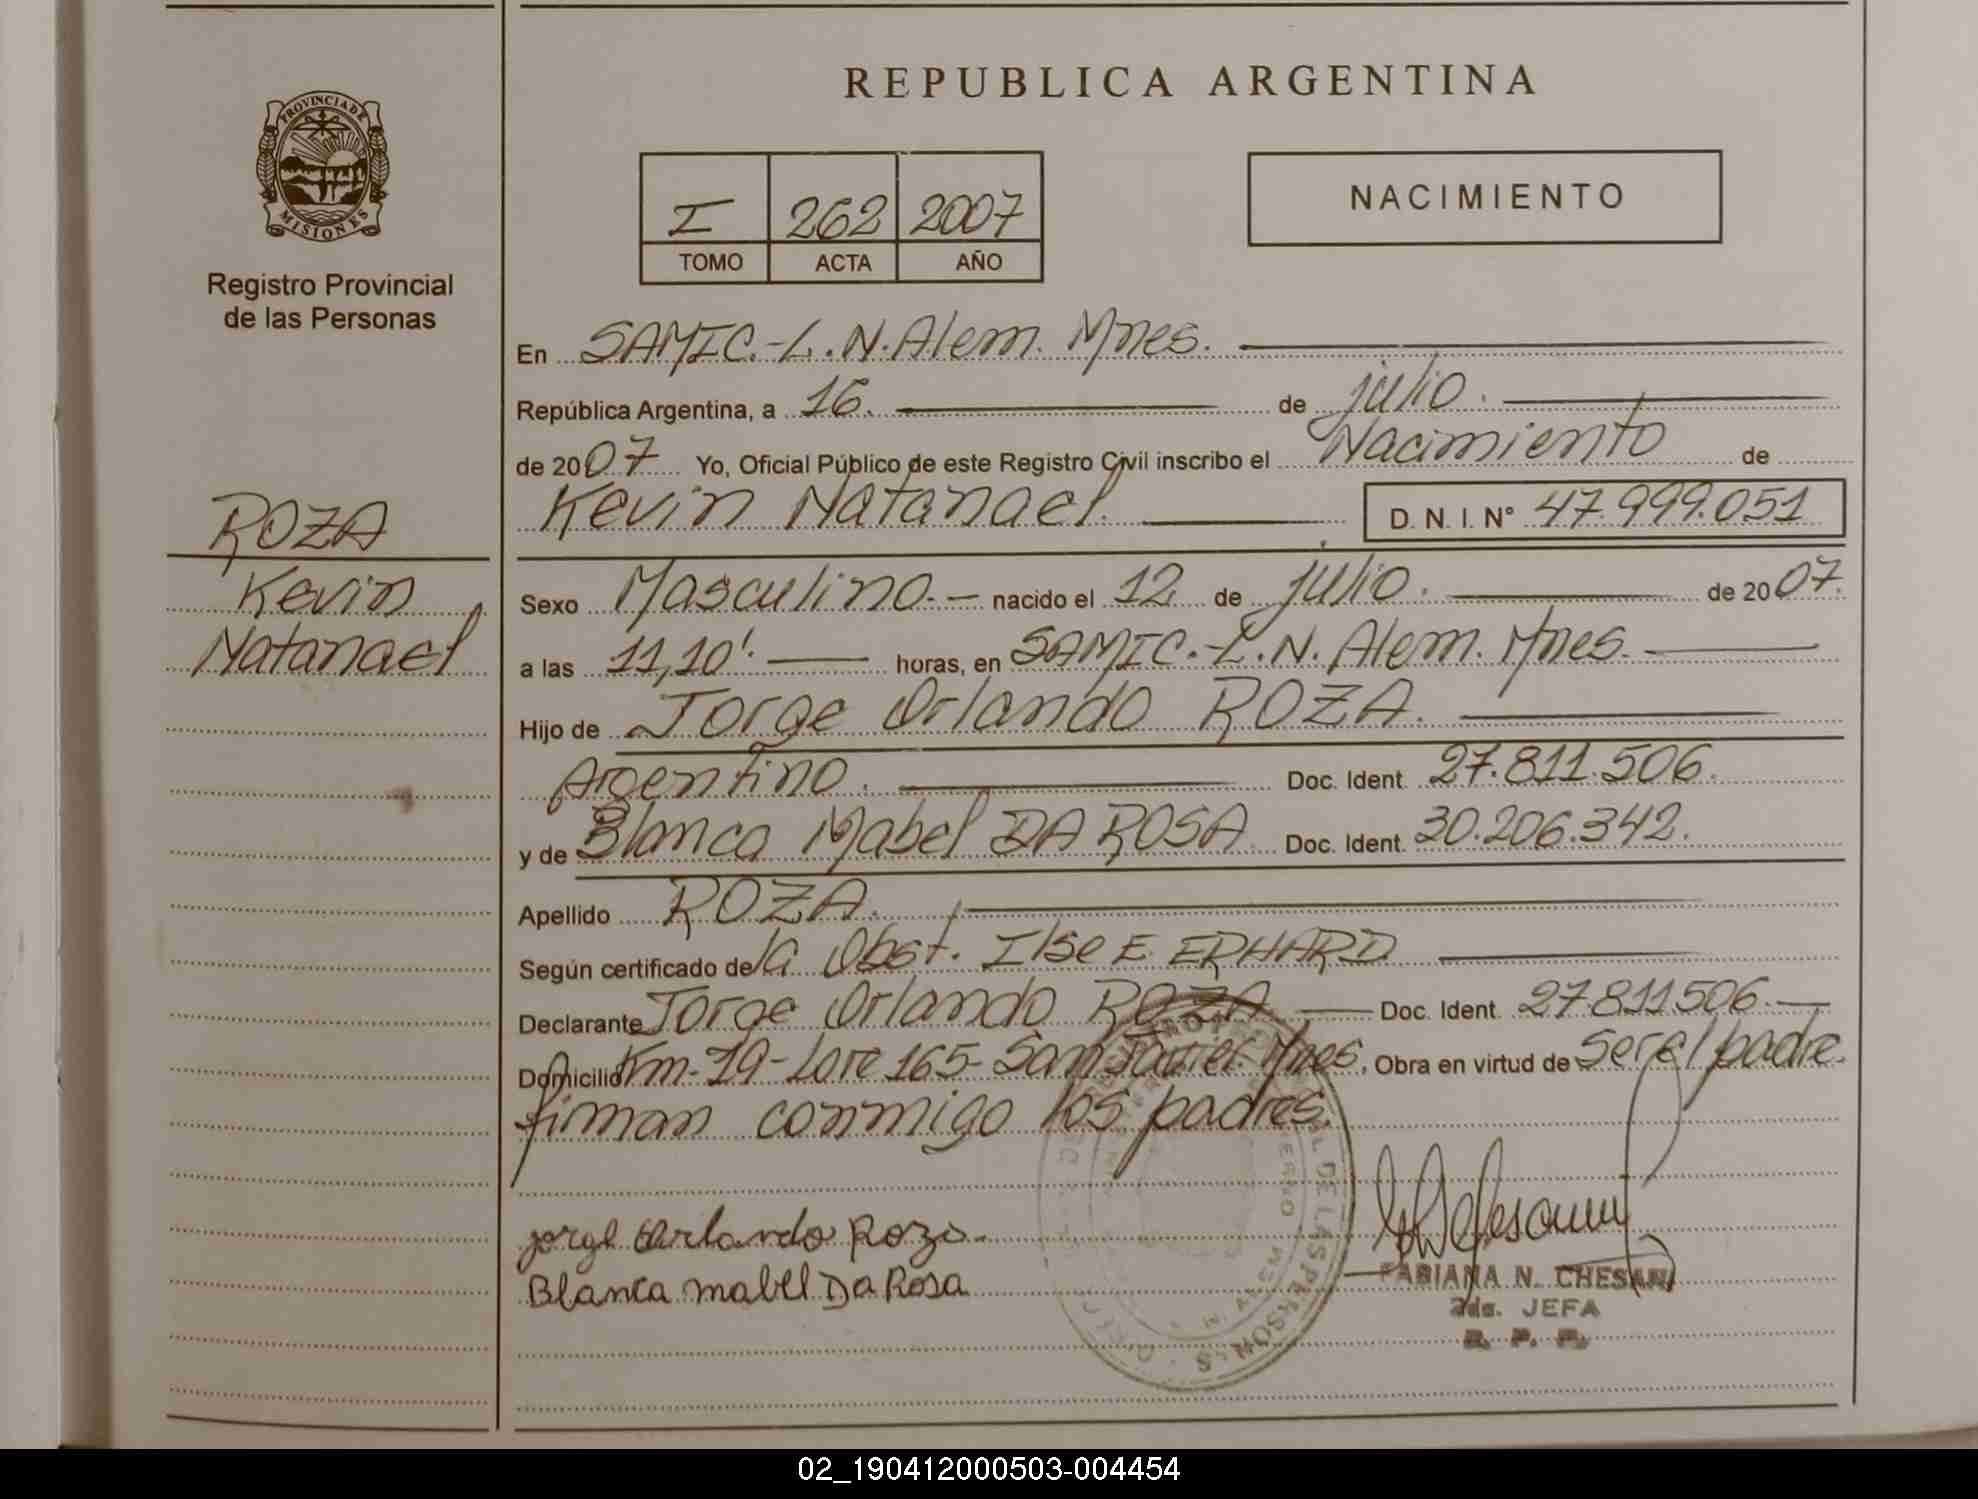 REPUBLICA ARGENTINA
PROVINCIA DE
MISIONES
Registro Provincial
de las Personas
I 262 2007
TOMO ACTA AÑO
NACIMIENTO
En SAMIC.-L.N.Alem. Mnes.
República Argentina, a 16. de julio.
de 2007 Yo, Oficial Público de este Registro Civil inscribo el Nacimiento de
Kevin Natanael. D. N. I. N° 47.999.051
ROZA
Kevin
Natanael
Sexo Masculino.- nacido el 12 de julio. de 2007.
a las 11,10'. horas, en SAMIC.-L.N. Alem. Mnes.
Hijo de Jorge Orlando ROZA.
Argentino. Doc. Ident. 27.811.506.
y de Blanca Mabel DA ROSA Doc. Ident. 30.206.342.
Apellido ROZA.
Según certificado de la Obst. Ilse E. ERHARD
Declarante Jorge Orlando ROZA Doc. Ident. 27811506.
Domicilio Km-19-Lote 165-San Javier. Mnes. Obra en virtud de Ser el padre.
firman conmigo los padres.
Jorge Orlando Roza.
Blanca mabel Da Rosa
FABIANA N. CHESANI
2da. JEFA
R. P. P.
DE LAS PERSONAS
02_190412000503-004454